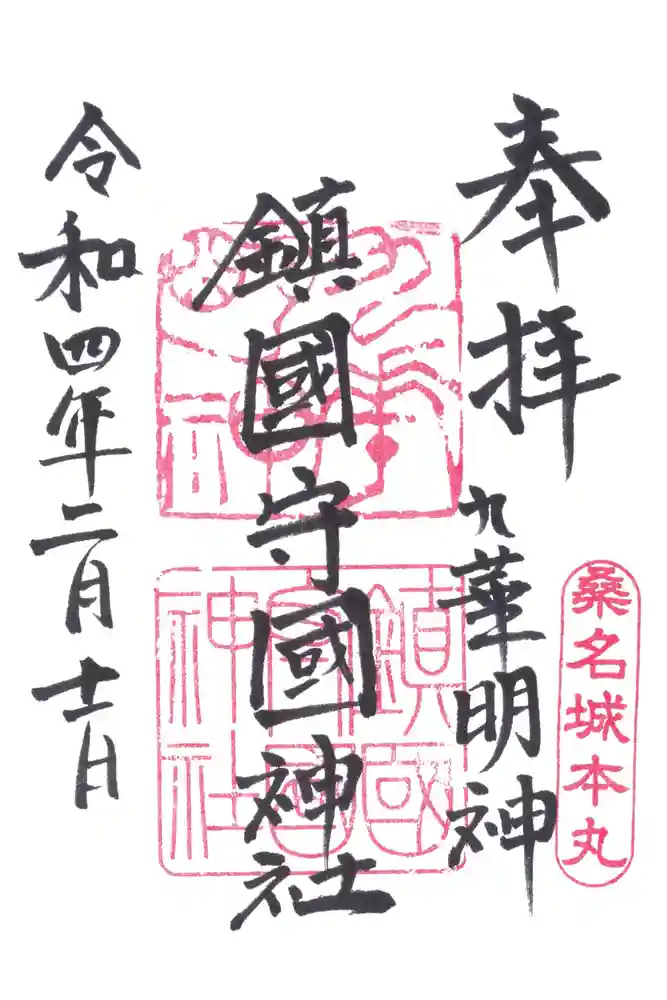 奉拝
九華明神
桑名城本丸
鎮國守國神社
鎮國
守國
神社
令和四年二月十一日